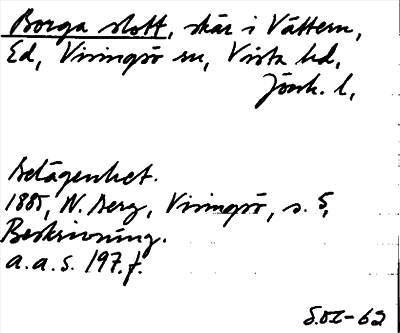 Borga slott, skär i Vättern,
Ed, Visingsö sn, Vista hd,
Jönk. l,
Belägenhet.
1885, N. Berg, Visingsö, s. 5,
Beskrivning.
a.a.s. 197.f.
S.OI-62